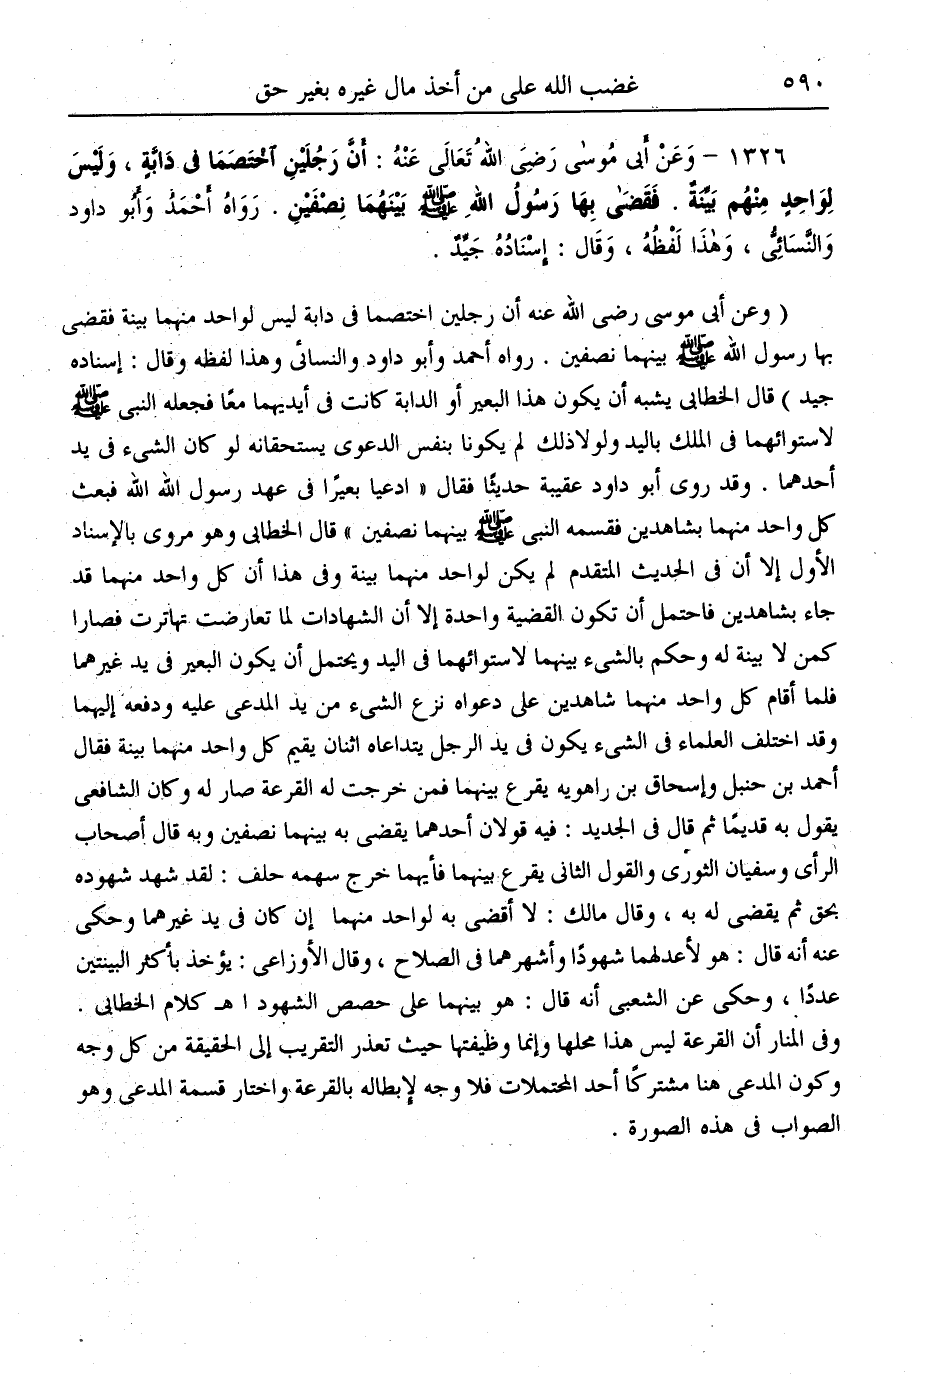 ٥٩٠ غضب الله على من أخذ مال غيره بغير حق
١٣٢٦ – وَعَنْ أَبِى مُوسٰى رَضِىَ اللهُ تَعَالَى عَنْهُ : أَنَّ رَجُلَيْنِ ٱخْتَصَمَا فى دَابَّةٍ ، وَلَيْسَ
لِوَاحِدٍ مِنْهُم بَيِّنَةٌ . فَقَضٰى بِهَا رَسُولُ اللهِ ﷺ بَيْنَهُمَا نِصْفَيْنِ . رَوَاهُ أَحْمَدُ وَأَبُو داود
وَالنَّسَائِىُّ ، وَهٰذَا لَفْظُهُ ، وَقَال : إِسْنَادُهُ جَيِّدٌ .
( وعن أبى موسى رضى الله عنه أن رجلين اختصما فى دابة ليس لواحد منهما بينة فقضى
بها رسول الله ﷺ بينهما نصفين . رواه أحمد وأبو داود والنسائى وهذا لفظه وقال : إسناده
جيد ) قال الخطابى يشبه أن يكون هذا البعير أو الدابة كانت فى أيديهما معًا فجعله النبى ﷺ
لاستوائهما فى الملك باليد ولولاذلك لم يكونا بنفس الدعوى يستحقانه لو كان الشىء فى يد
أحدهما . وقد روى أبو داود عقيبة حديثًا فقال « ادعيا بعيرًا فى عهد رسول الله الله فبعث
كل واحد منهما بشاهدين فقسمه النبى ﷺ بينهما نصفين » قال الخطابى وهو مروى بالإسناد
الأول إلا أن فى الحديث المتقدم لم يكن لواحد منهما بينة وفى هذا أن كل واحد منهما قد
جاء بشاهدين فاحتمل أن تكون القضية واحدة إلا أن الشهادات لما تعارضت تهاترت فصارا
كمن لا بينة له وحكم بالشىء بينهما لاستوائهما فى اليد ويحتمل أن يكون البعير فى يد غيرهما
فلما أقام كل واحد منهما شاهدين على دعواه نزع الشىء من يد المدعى عليه ودفعه إليهما
وقد اختلف العلماء فى الشىء يكون فى يد الرجل يتداعاه اثنان يقيم كل واحد منهما بينة فقال
أحمد بن حنبل وإسحاق بن راهويه يقرع بينهما فمن خرجت له القرعة صار له وكان الشافعى
يقول به قديمًا ثم قال فى الجديد : فيه قولان أحدهما يقضى به بينهما نصفين وبه قال أصحاب
الرأى وسفيان الثورى والقول الثانى يقرع بينهما فأيهما خرج سهمه حلف : لقد شهد شهوده
بحق ثم يقضى له به ، وقال مالك : لا أقضى به لواحد منهما إن كان فى يد غيرهما وحكى
عنه أنه قال : هو لأعدلهما شهودًا وأشهرهما فى الصلاح ، وقال الأوزاعى : يؤخذ بأكثر البينتين
عددًا ، وحكى عن الشعبى أنه قال : هو بينهما على حصص الشهود ا هـ كلام الخطابى .
وفى المنار أن القرعة ليس هذا محلها وإنما وظيفتها حيث تعذر التقريب إلى الحقيقة من كل وجه
وكون المدعى هنا مشتركًا أحد المحتملات فلا وجه لإبطاله بالقرعة واختار قسمة المدعى وهو
الصواب فى هذه الصورة .